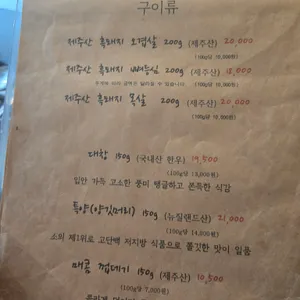 구이류
제주산 흑돼지 오겹살 200g (제주산) 20,000
(100g당 10,000원)
제주산 흑돼지 뼈등심 200g (제주산) 18,000
제주산 흑돼지 목살 200g (제주산) 20,000
(100g당 10,000원)
대창 150g (국내산 한우) 19,500
(100g당 13,000원)
입안 가득 고소한 풍미 탱글하고 쫀득한 식감
특양(양깃머리) 150g (뉴질랜드산) 21,000
(100g당 14,000원)
소의 제1위로 고단백 저지방 식품으로 쫄깃한 맛이 일품
매콤 껍데기 150g (제주산) 10,500
(100g당 7,000원)